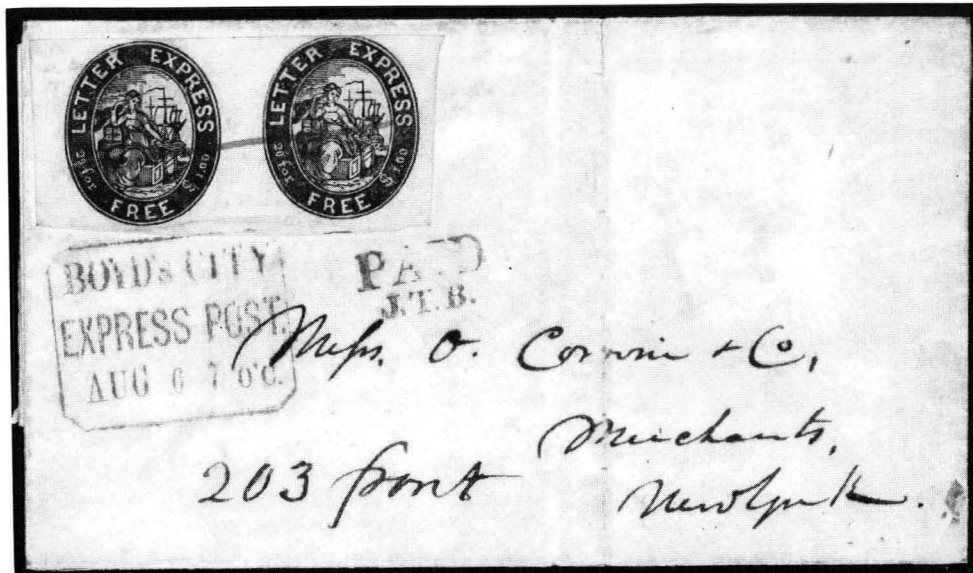 LETTER EXPRESS
20 for FREE $1.00
LETTER EXPRESS
20 for FREE $1.00
BOYD'S CITY
EXPRESS POST.
AUG 6 7 O'C.
PAID
J.T.B.
Messrs. O. Corwin + Co,
Merchants,
203 front New York.